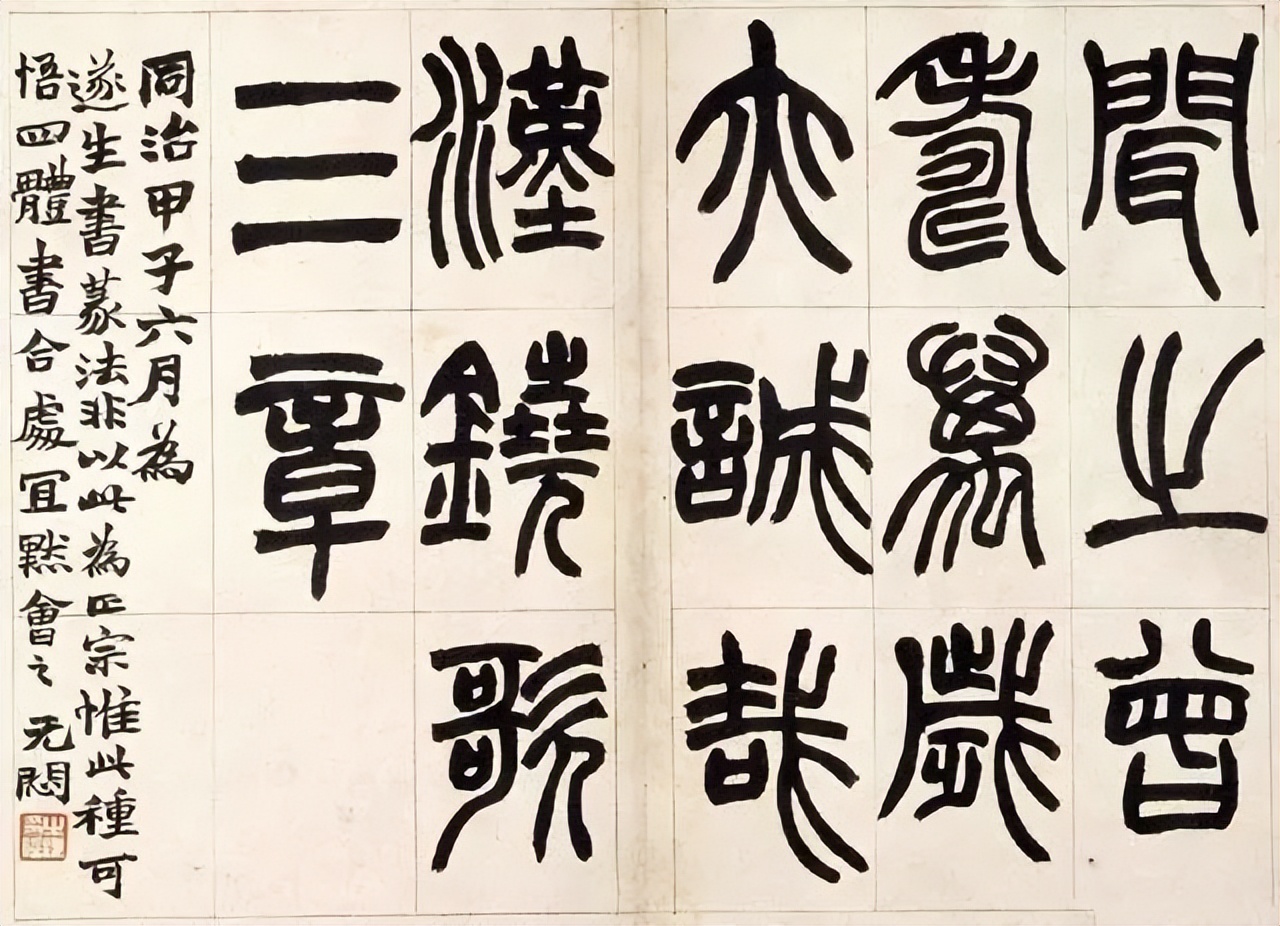 聞之曾
壽萬歲
亦誠哉
漢鐃歌
三章
同治甲子六月為
遂生書篆法非以此為正宗惟此種可
悟四體書合處冝黙會之 无悶